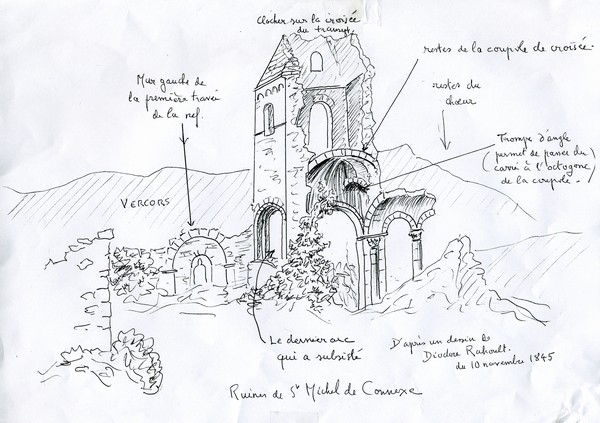 Clocher sur la croisée
du transept.
restes de la coupole de croisée.
Mur gauche de
la première travée
de la nef.
restes du
chœur
Trompe d'angle
(permet de passer du
carré à l'octogone)
de la coupole.
VERCORS
Le dernier arc
qui a subsisté
D'après un dessin de
Diodore Rahoult.
du 10 novembre 1845
Ruines de St Michel de Connexe